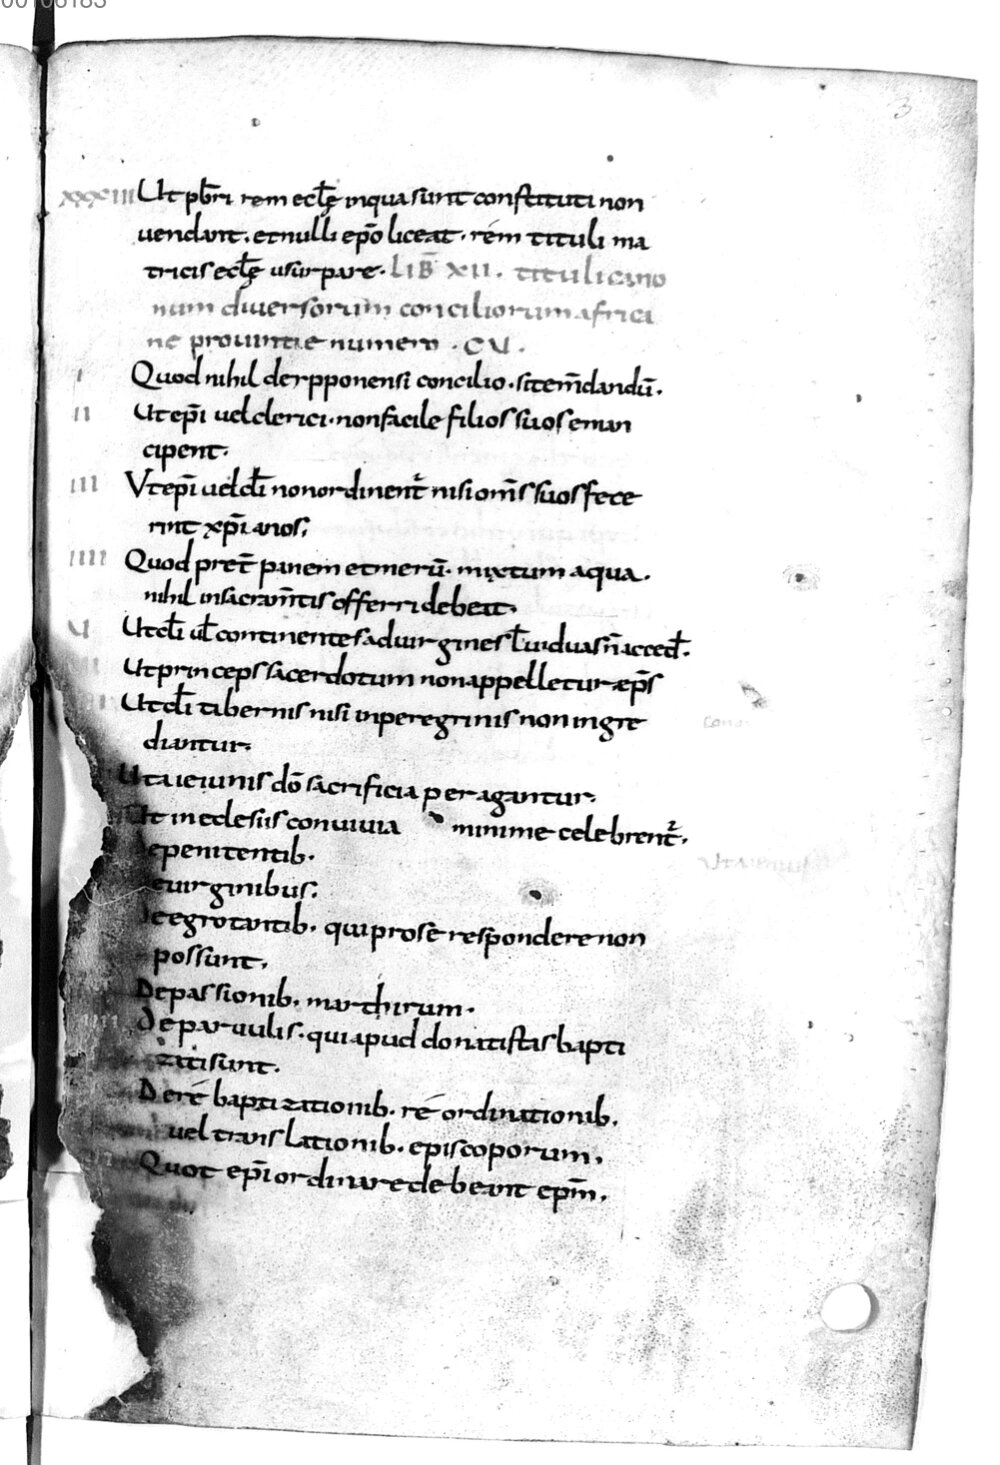 3
xxxiii Ut pbr̄i rem eclę̄ inqua sunt constituti non
uendant. et nulli ep̄o liceat. rem tituli ma
tricis eclę̄ usurpare. LIB̄ XII. tituli cano
num diuersorum conciliorum africa
ne prouintiae numero . CV.
i Quod nihil de ypponensi concilio. sit em̄dandū.
ii Ut ep̄i uel clerici. non facile filios suos eman
cipent.
iii Vt ep̄i uel cl̄i non ordinent̄ nisi om̄s suos fece
rint xp̄ianos;
iiii Quod pret̄ panem et merū. mixtum aqua.
nihil in sacram̄tis offerri debeat.
u Ut cl̄i ul̄ continentes ad uirgines l̄ uiduas n̄ acced̄.
Ut princeps sacerdotum non appelletur ep̄s
Ut cl̄i tabernis nisi in peregrinis non ingre
diantur.
Ut a ieiunis dō sacrificia peragantur.
Ut in eclesiis conuiuia minime celebrent̄.
De penitentib.
De uirginibus.
De egrotantib. qui pro se respondere non
possunt.
De passionib. marthirum.
De paruulis. qui apud donatistas bapti
zati sunt.
De re baptizationib. re ordinationib.
uel translationib. episcoporum.
Quot ep̄i ordinare debeant ep̄m.